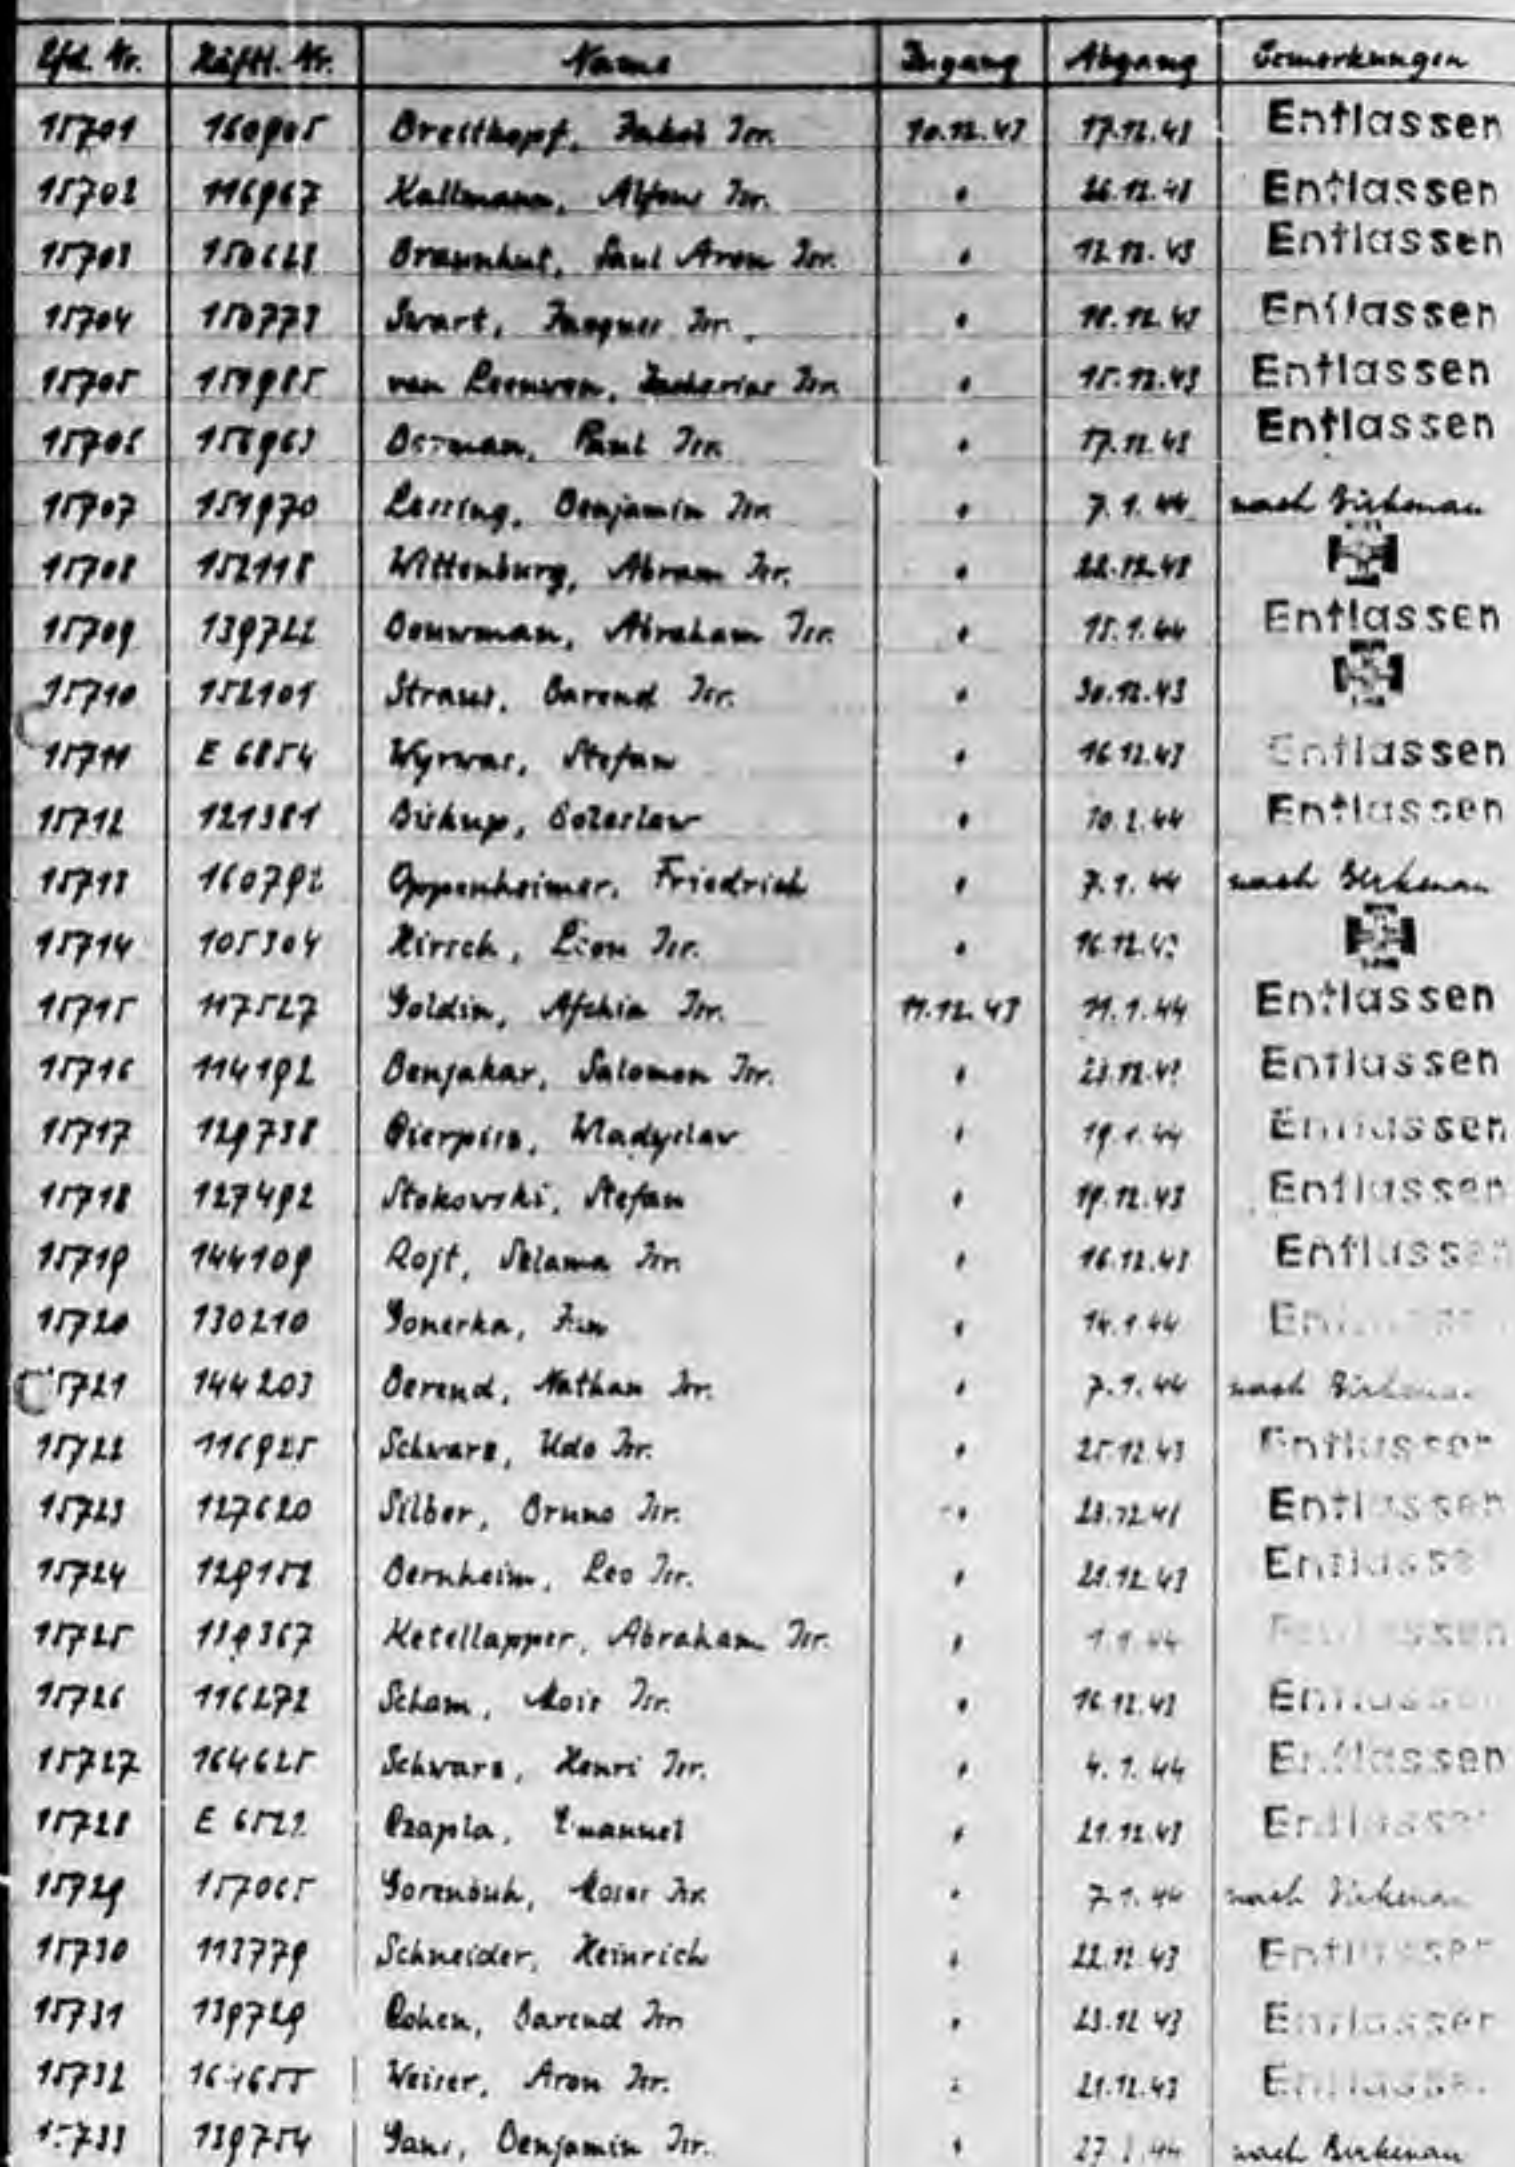 Lfd. Nr. Häftl. Nr. Name Zugang Abgang Bemerkungen
15701 160905 Breitkopf, Isr. 10.12.43 17.12.43 Entlassen
15702 116967 Kallmann, Alfons Isr. " 26.12.43 Entlassen
15703 150623 Braunhut, Saul Aron Isr. " 12.12.43 Entlassen
15704 150773 Swart, Jacques Isr. " 18.12.43 Entlassen
15705 151985 van Leeuwen, Isr. " 15.12.43 Entlassen
15706 Paul Isr. " 17.12.43 Entlassen
15707 151970 Lessing, Benjamin Isr. " 7.1.44 nach Birkenau
15708 152118 Wittenburg, Abram Isr. " 22.12.43
15709 139722 Bouwman, Abraham Isr. " 15.1.44 Entlassen
15710 152101 Straus, Barend Isr. " 30.12.43
15711 E 6854 Wyrwas, Stefan " 16.12.43 Entlassen
15712 121381 Biskup, Boleslaw " 10.2.44 Entlassen
15713 160792 Oppenheimer, Friedrich " 7.1.44 nach Birkenau
15714 105304 Hirsch, Lion Isr. " 16.12.43
15715 117527 Goldin, Isr. 11.12.43 11.1.44 Entlassen
15716 114192 Benjakar, Salomon Isr. " 23.12.43 Entlassen
15717 129738 Wladyslav " 19.1.44 Entlassen
15718 127492 Stokowski, Stefan " 19.12.43 Entlassen
15719 144109 Rojt, Selama Isr. " 16.12.43 Entlassen
15720 130210 Gonerka, Jan " 14.1.44 Entlassen
15721 144203 Berend, Nathan Isr. " 7.1.44 nach Birkenau
15722 116925 Schwarz, Udo Isr. " 25.12.43 Entlassen
15723 127620 Silber, Bruno Isr. " 23.12.43 Entlassen
15724 129152 Bernheim, Leo Isr. " 21.12.43 Entlassen
15725 139367 Ketellapper, Abraham Isr. " 1.1.44 Entlassen
15726 116272 Scham, Isr. " 16.12.43 Entlassen
15727 164625 Schwarz, Henri Isr. " 4.1.44 Entlassen
15728 Czapla, Emanuel " 21.12.43 Entlassen
15729 157065 Moses Isr. " 7.1.44 nach Birkenau
15730 113779 Schneider, Heinrich " 22.12.43 Entlassen
15731 139729 Cohen, Barend Isr. " 23.12.43 Entlassen
15732 Weiser, Aron Isr. " 21.12.43 Entlassen
15733 139754 Gans, Benjamin Isr. " nach Birkenau